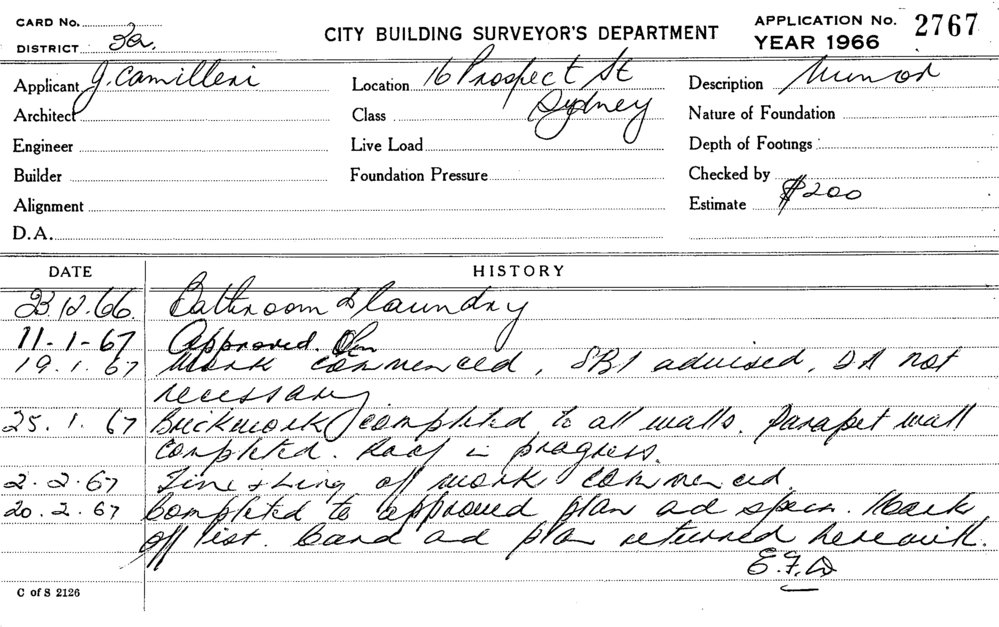 CARD No.
DISTRICT 32.
CITY BUILDING SURVEYOR'S DEPARTMENT
APPLICATION No. 2767
YEAR 1966
Applicant J. Camilleri
Location 16 Prospect St
Sydney
Description Minor
Architect
Class
Nature of Foundation
Engineer
Live Load
Depth of Footings
Builder
Foundation Pressure
Checked by
Alignment
Estimate $200
D.A.
DATE HISTORY
23.12.66. Bathroom & laundry
11-1-67 Approved.
19.1.67 Work commenced, SBI advised, DA not
necessary
25.1.67 Brickwork completed to all walls. Parapet wall
completed. Roof in progress.
2.2.67 Finishing off work commenced.
20.2.67 Completed to approved plan ad specn. Mark
off list. Card ad plan returned herewith.
E.F.D
C of S 2126